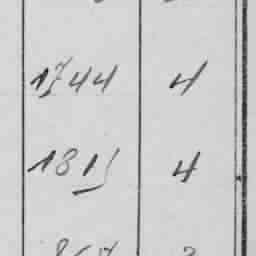 1744 4
1815 4